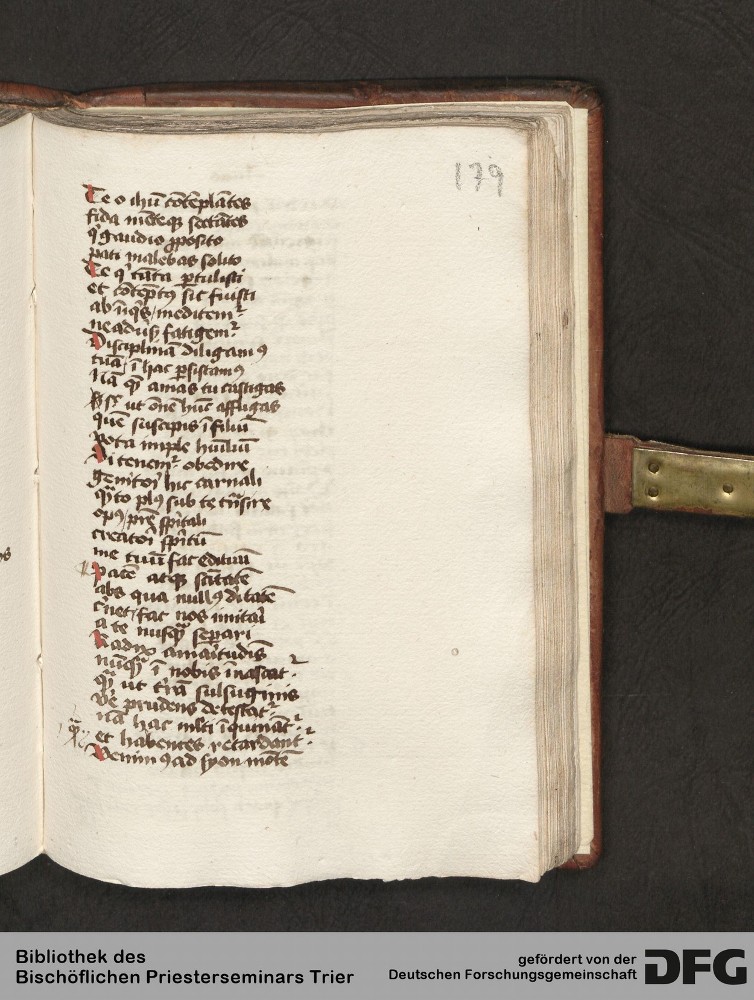 179
Te o ihū cōtēplātes
fida mēteqꝫ sectātes
q̇ gaudio ꝓposito
pati malebas solito
Te q̇ tāta ꝑtulisti
et cōtēptꝰ sic fuisti
ab iīqs meditemᷣ
ne adusͥ fatigemᷣ
Disciplinā diligamꝰ
tuā ī hac ꝑsistamꝰ
Nā quē amas tu castigas
ut oēm hūc affligas
quē suscipis ī filiū
vota imple hūiliū
Si tenemᷣ obedire
genitori hic carnali
q̄to plꝰ sub te trāsire
opꝰ prē spūali
creatori spūū
me tuū fac edituū
Pacē atqꝫ sc̄itatē
abs qua nullꝰ d̄itatē
c̓net fac nos imitari
a te nusqꝫ separi
Radix amaritudīs
nūqꝫ ī nobis īnascatᷣ
quā ut t̓rā sulsugīnis
vir prudens detestatᷣ
nā hac mlti īquināt̄ᷣ
et habentes retardantᷣ
Venimꝰ ad syon mōtē
Bibliothek des
Bischöflichen Priesterseminars Trier
gefördert von der
Deutschen Forschungsgemeinschaft
DFG